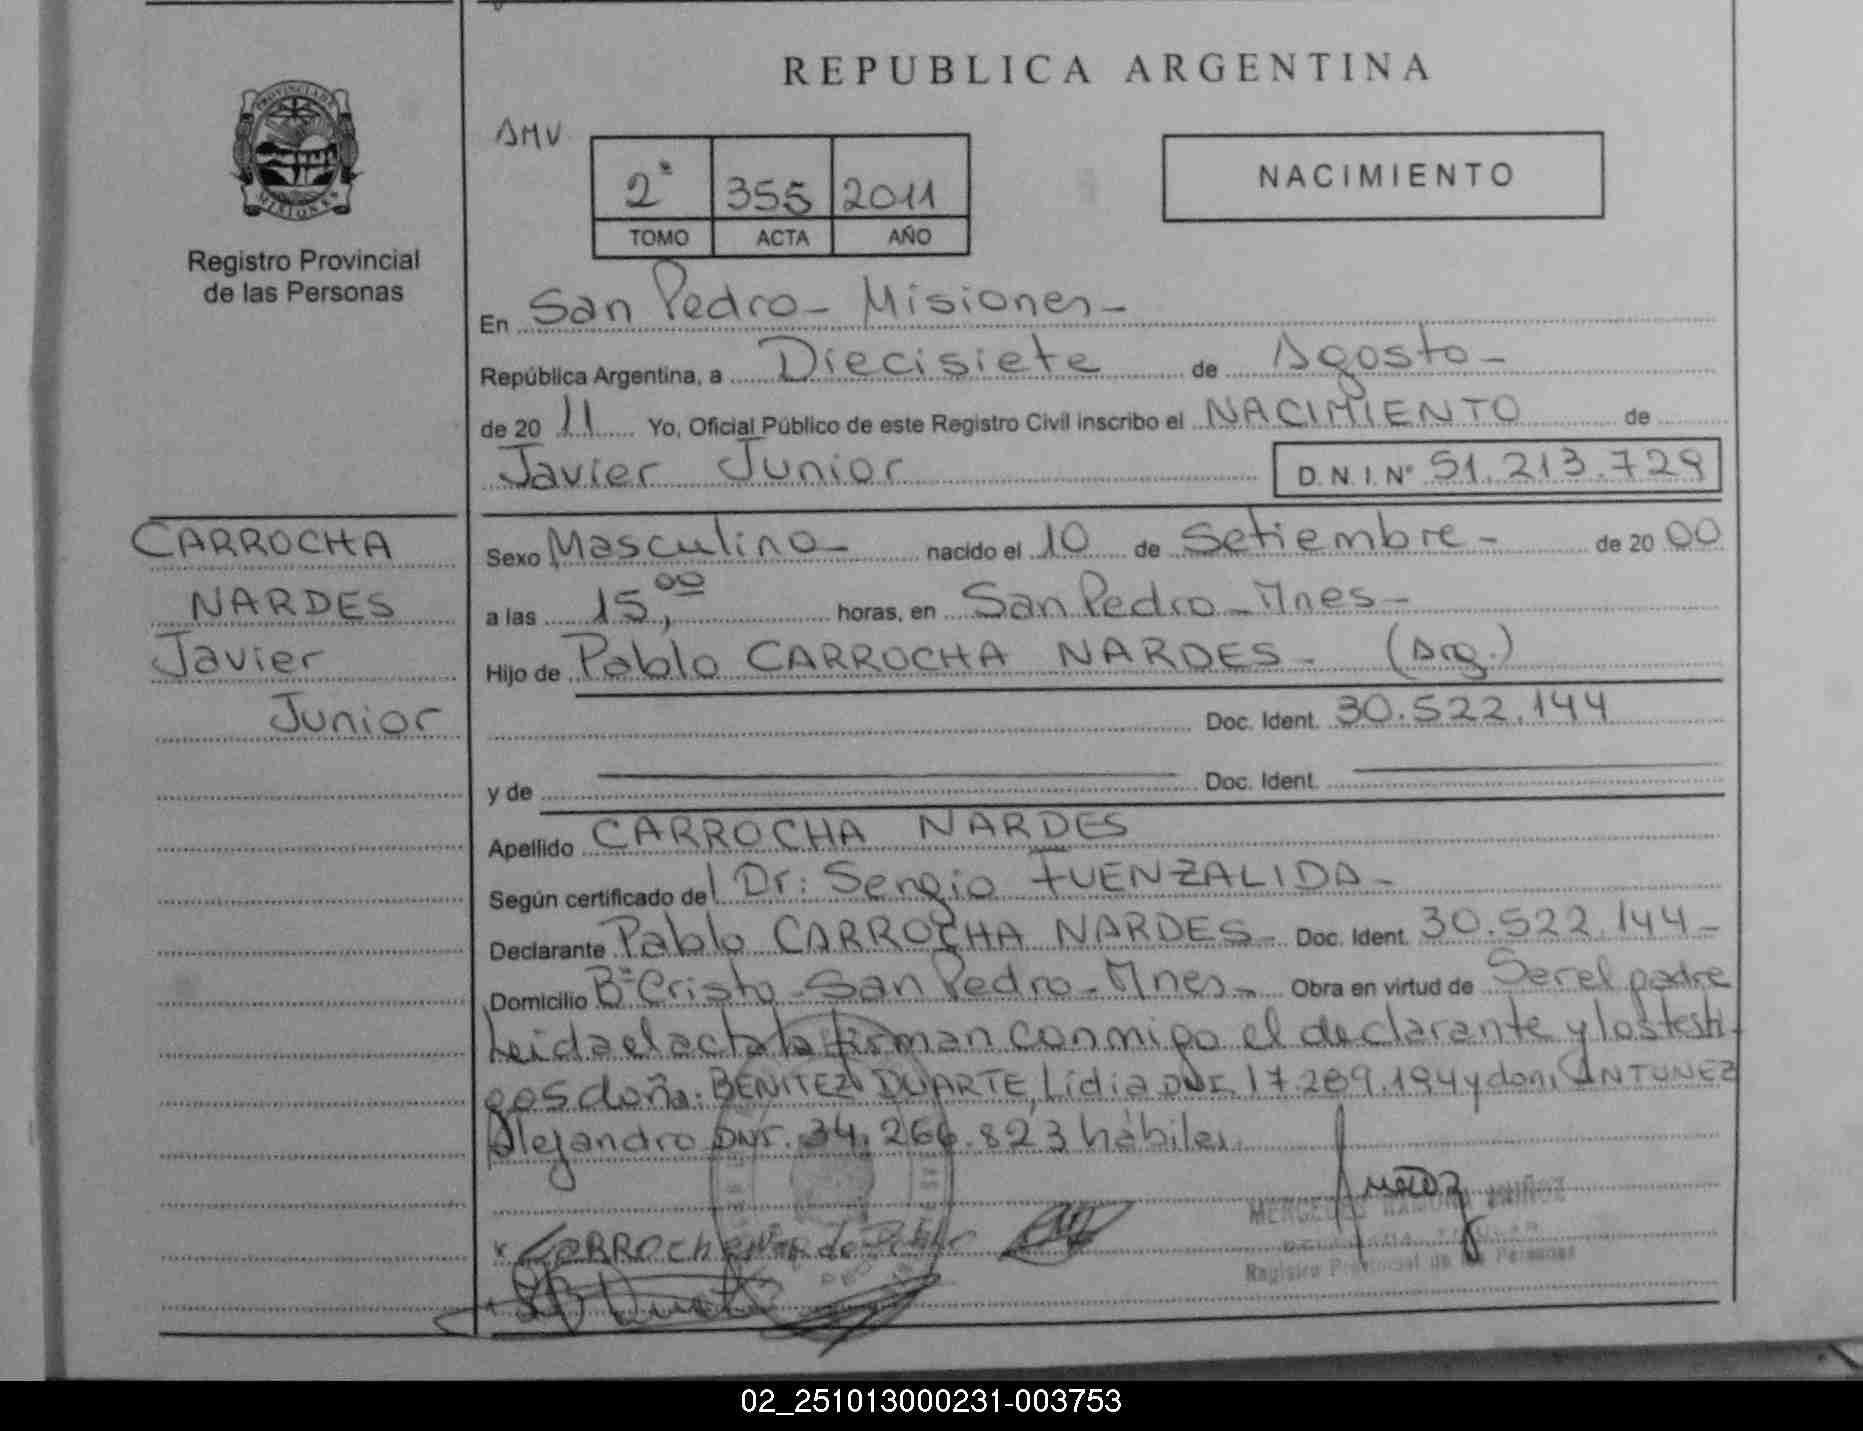 REPUBLICA ARGENTINA
PROVINCIA DE
MISIONES
Registro Provincial
de las Personas
AMV
2ª 355 2011
TOMO ACTA AÑO
NACIMIENTO
En San Pedro - Misiones -
República Argentina, a Diecisiete de Agosto -
de 20 11 Yo, Oficial Público de este Registro Civil inscribo el NACIMIENTO de
Javier Junior D.N.I.Nº 51.213.729
CARROCHA
NARDES
Javier
Junior
Sexo Masculino - nacido el 10 de Setiembre - de 20 00
a las 15,00 horas, en San Pedro - Mnes -
Hijo de Pablo CARROCHA NARDES - (Arg.)
Doc. Ident. 30.522.144
y de Doc. Ident.
Apellido CARROCHA NARDES
Según certificado del Dr: Sergio FUENZALIDA -
Declarante Pablo CARROCHA NARDES - Doc. Ident. 30.522.144 -
Domicilio Bº Cristo - San Pedro - Mnes - Obra en virtud de Ser el padre
Leida el acta la firman conmigo el declarante y los testi-
gos doña: BENITEZ DUARTE, Lidia DNI. 17.289.194 y don, ANTUNEZ
Alejandro DNI. 34.266.823 hábiles.
MERCEDES RAMONA MUÑOZ
Registro Provincial de las Personas
02_251013000231-003753